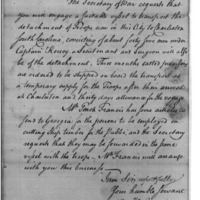 The Secretary of War requests that
you will engage a suitable vessel to transport the
detachment of Troops now in this City to Charleston
South Carolina consisting of about forty four men under
Captain Kersey a Servant and one Surgeon will also
be of the detachment. Three months extra provisions
are ordered to be shipped on board the transport as
a temporary supply for the Troops after their arrival
at Charleston and thirty days allowance for the voyage
Mr. Francis has some articles to
send to Georgia for the persons to be employed in
cutting Ship timber for the Public and the Secretary
requests that they may be forwarded in the same
vessel with the troops. Mr. Francis will arrange
with you this business.
I am Sir
Your humble Servant